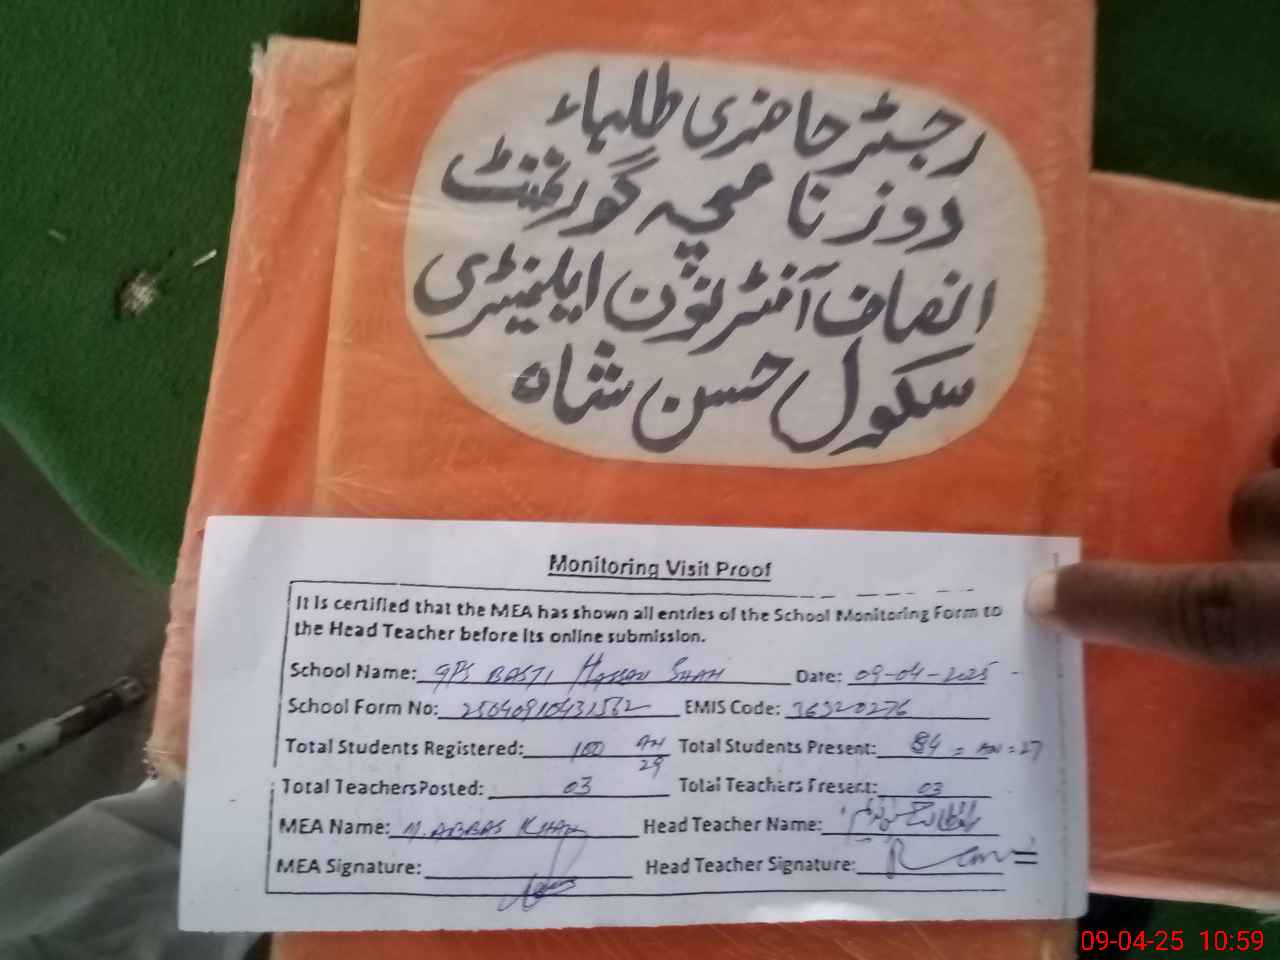 رجسٹر حاضری طلباء
روزنامچہ گورنمنٹ
انصاف آفٹرنون ایلیمنٹری
سکول حسن شاہ
Monitoring Visit Proof
It is certified that the MEA has shown all entries of the School Monitoring Form to
the Head Teacher before its online submission.
School Name: GPS BASTI Hassan SHAH Date: 09-04-2025
School Form No: 25040910431562 EMIS Code: 36320276
Total Students Registered: 100 AN 29 Total Students Present: 84 = AN = 27
Total Teachers Posted: 03 Total Teachers Present: 03
MEA Name: M. ABBAS KHAN Head Teacher Name:
MEA Signature: Head Teacher Signature:
09-04-25 10:59